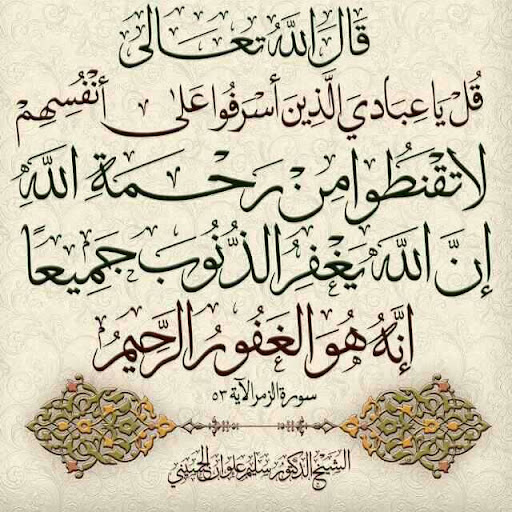 قَالَ اللَّهُ تَعَالَى
قُلْ يَا عِبَادِيَ الَّذِينَ أَسْرَفُوا عَلَى أَنْفُسِهِمْ
لَا تَقْنَطُوا مِنْ رَحْمَةِ اللَّهِ
إِنَّ اللَّهَ يَغْفِرُ الذُّنُوبَ جَمِيعًا
إِنَّهُ هُوَ الْغَفُورُ الرَّحِيمُ
سورة الزمر الآية ٥٣
الشيخ الدكتور سليم علوان الحسيني